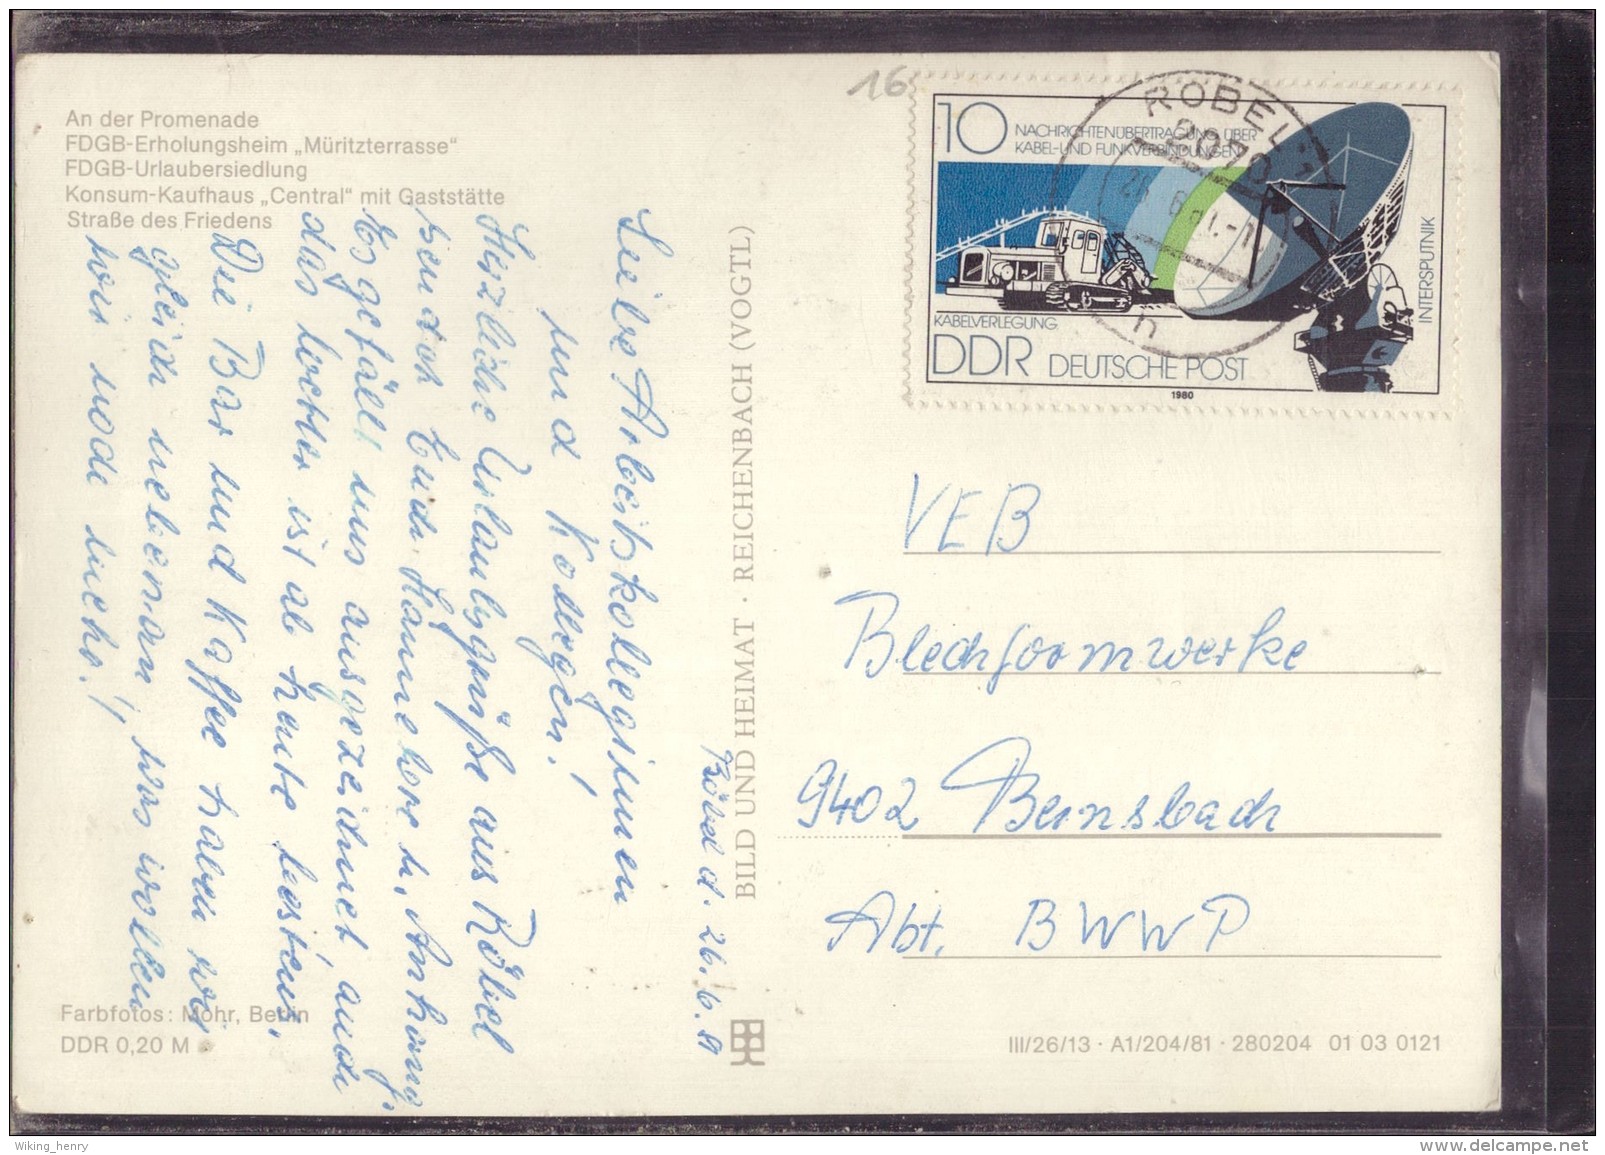 An der Promenade
FDGB-Erholungsheim „Müritzterrasse“
FDGB-Urlaubersiedlung
Konsum-Kaufhaus „Central“ mit Gaststätte
Straße des Friedens
Röbel d. 26.6.81
Liebe Arbeitskoleginnen
und Kollegen!
Herzliche Urlaubsgrüße aus Röbel
sendet Euch Hannelore u. Anhang.
Es gefällt uns ausgezeichnet auch
das Wetter ist ab heute bestens.
Die Bar und Kaffee haben wir
gleich nebenan, was wollen
wir noch mehr!
Farbfotos: Mohr, Berlin
DDR 0,20 M
BILD UND HEIMAT · REICHENBACH (VOGTL)
16
10
NACHRICHTENÜBERTRAGUNG ÜBER
KABEL-UND FUNKVERBINDUNGEN
INTERSPUTNIK
KABELVERLEGUNG
DDR DEUTSCHE POST
1980
RÖBEL
2070
h
VEB
Blechformwerke
9402 Bernsbach
Abt. BWWP
III/26/13 · A1/204/81 · 280204 01 03 0121
Wiking_henry
www.delcampe.net